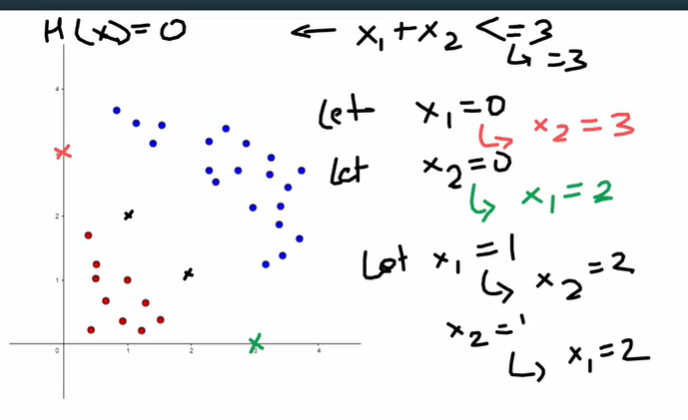 H(x)=0 ← x₁+x₂ <=3
↳ =3
4
Let x₁=0
↳ x₂=3
Let x₂=0
↳ x₁=2
2
Let x₁=1
↳ x₂=2
1
x₂=1
↳ x₁=2
0 1 2 3 4